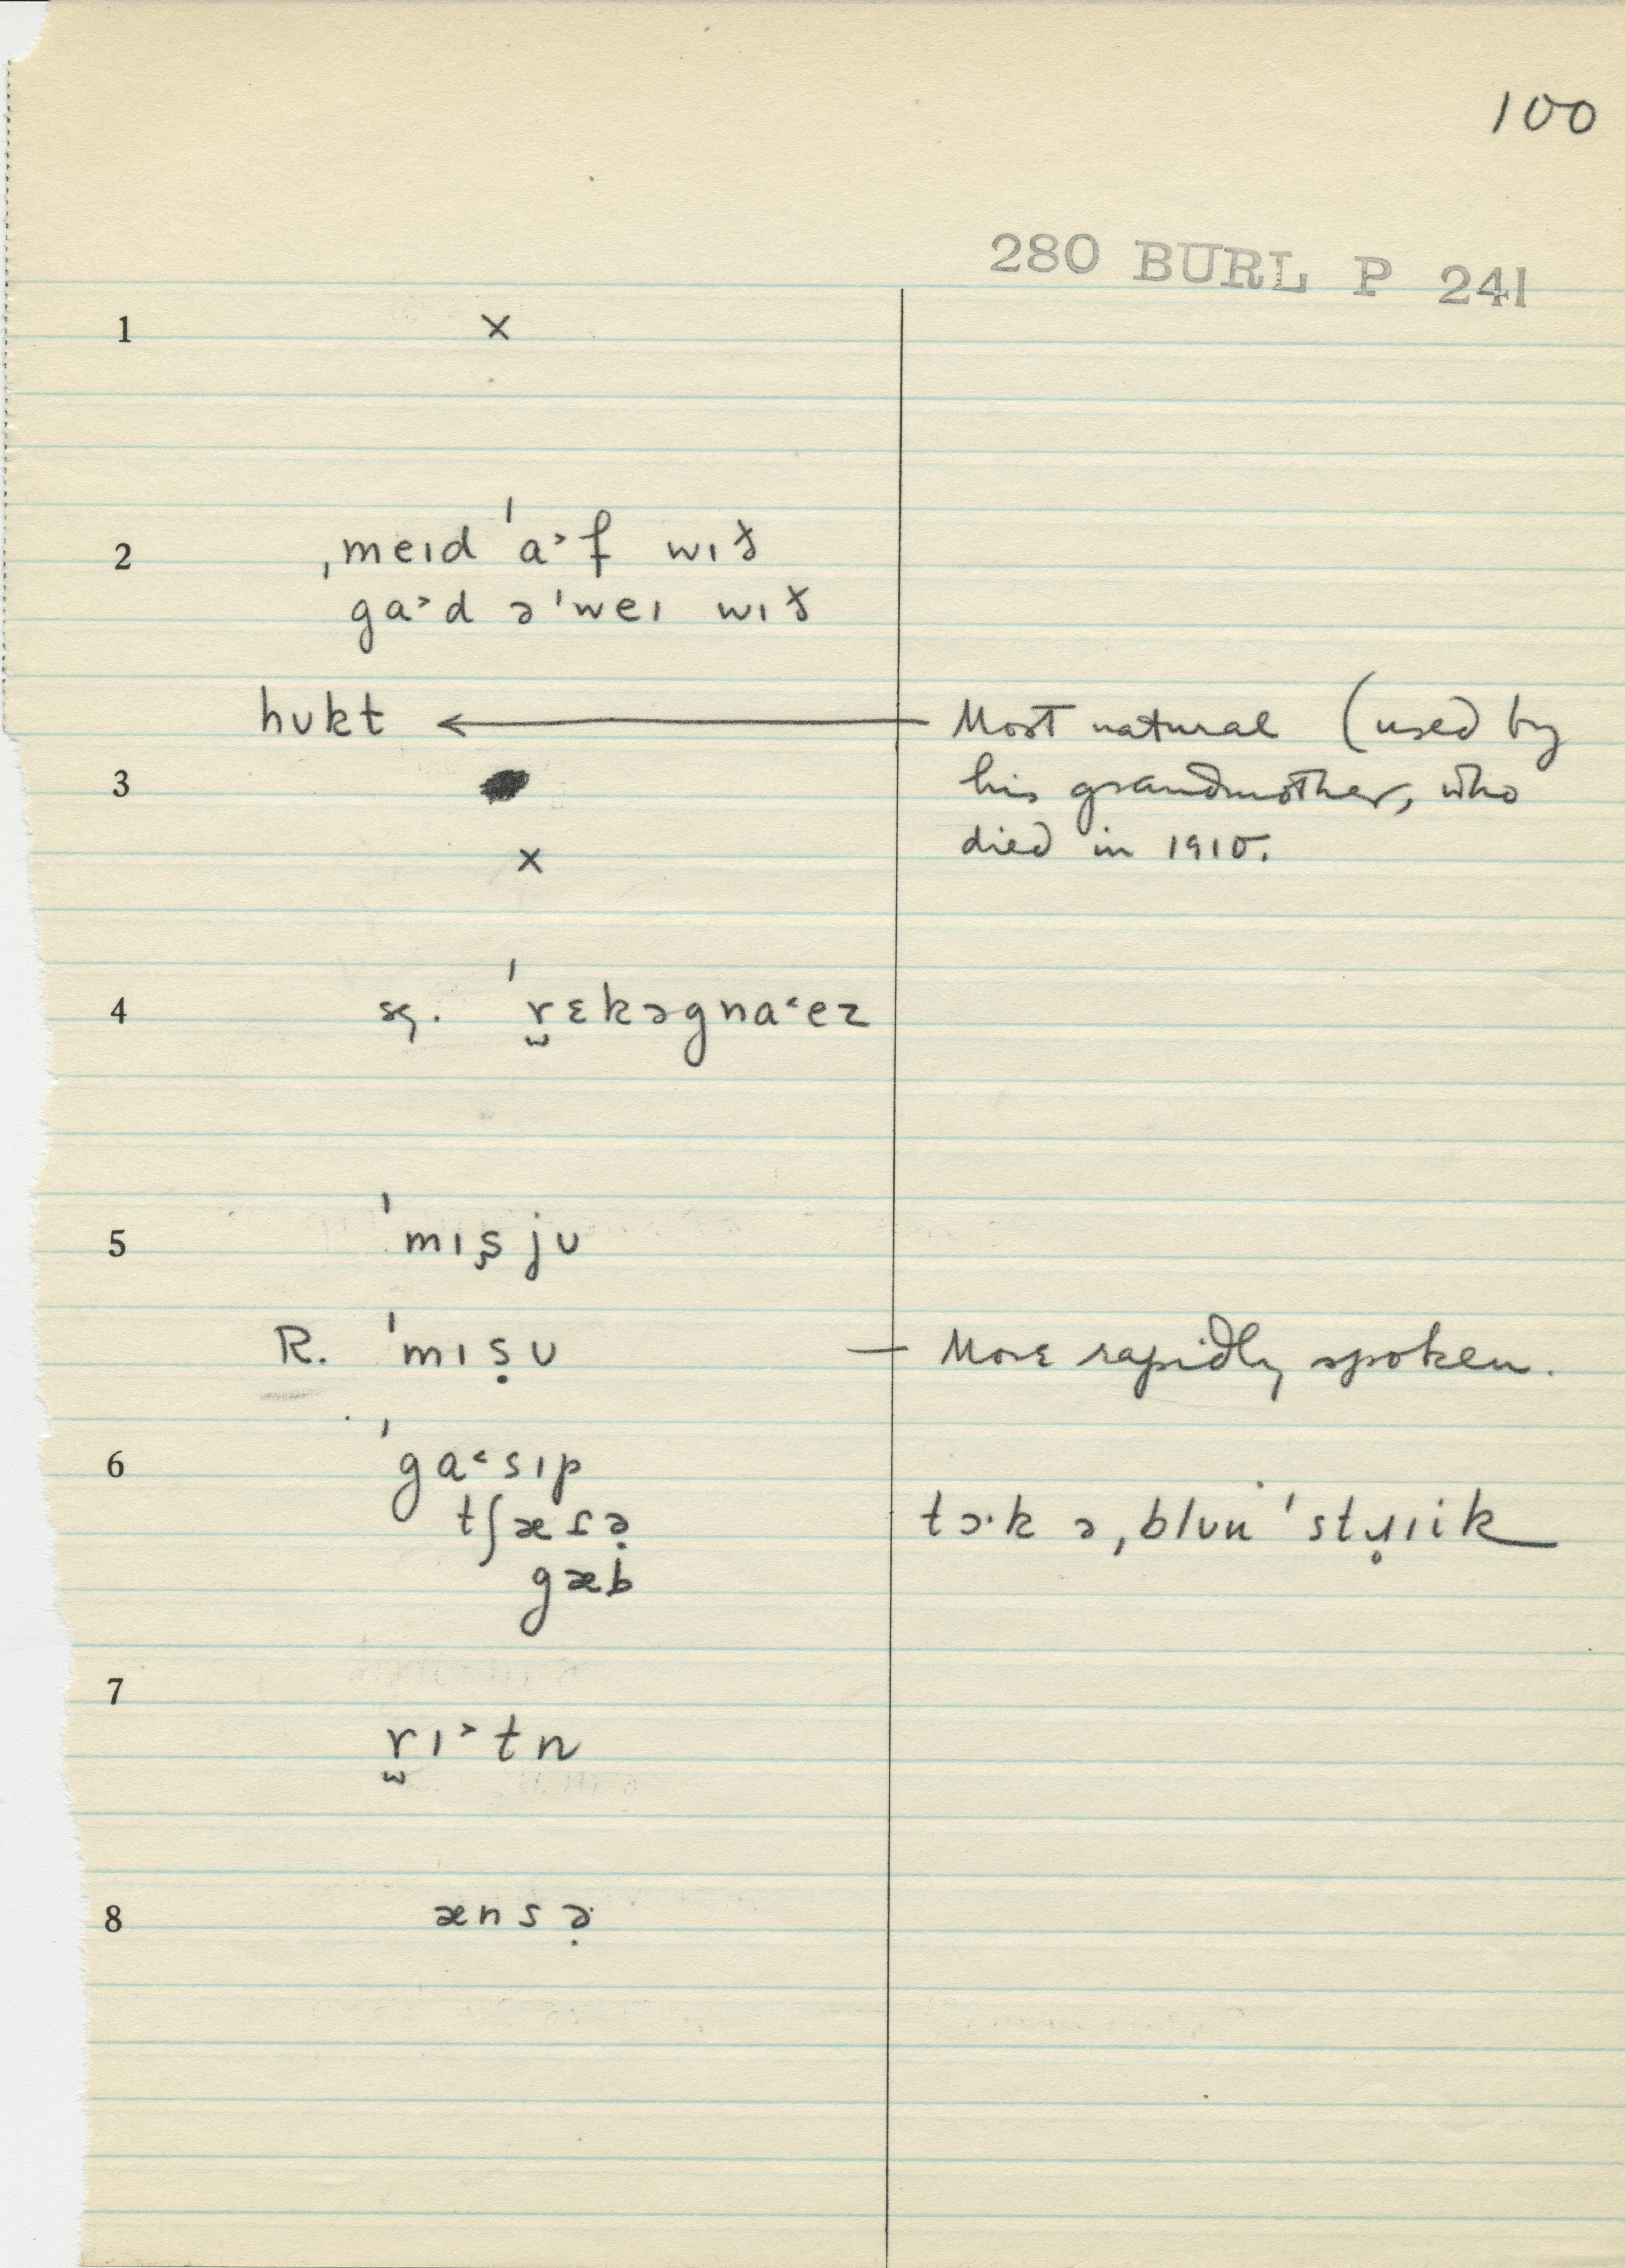 100
280 BURL P 241
1 ×
2 ˌmeɪd ˈa˃f wɪð
ga˃d əˈweɪ wɪð
hʊkt ← Most natural (used by
3 his grandmother, who
× died in 1910.
4 sg. ˈr̫ɛkəgna˂ez
5 ˈmɪs̬jʊ
R. ˈmɪṣʊ — More rapidly spoken.
6 ˈga˂sɪp
tʃæɾə̣ tɔ·k ə ˌblʊu ˈstɹ̥ɪik
gæb
7 r̫ɪ˃tn
8 ænsə̣